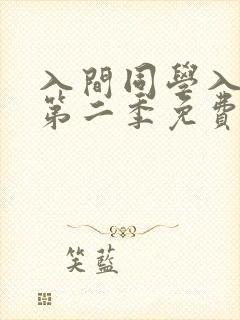 入間同學入
第二季免費
笑藍